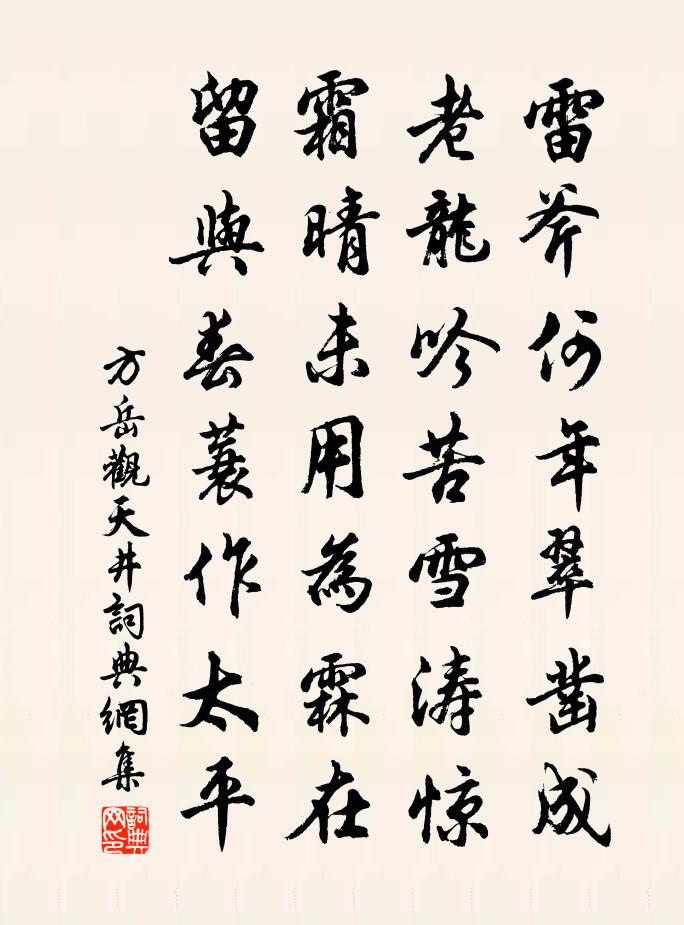 雷斧何年翠凿成
老龍吟苦雪涛惊
霜晴未用為霖在
留與春蓑作太平
方岳觀天井詞典網集
詞典網印